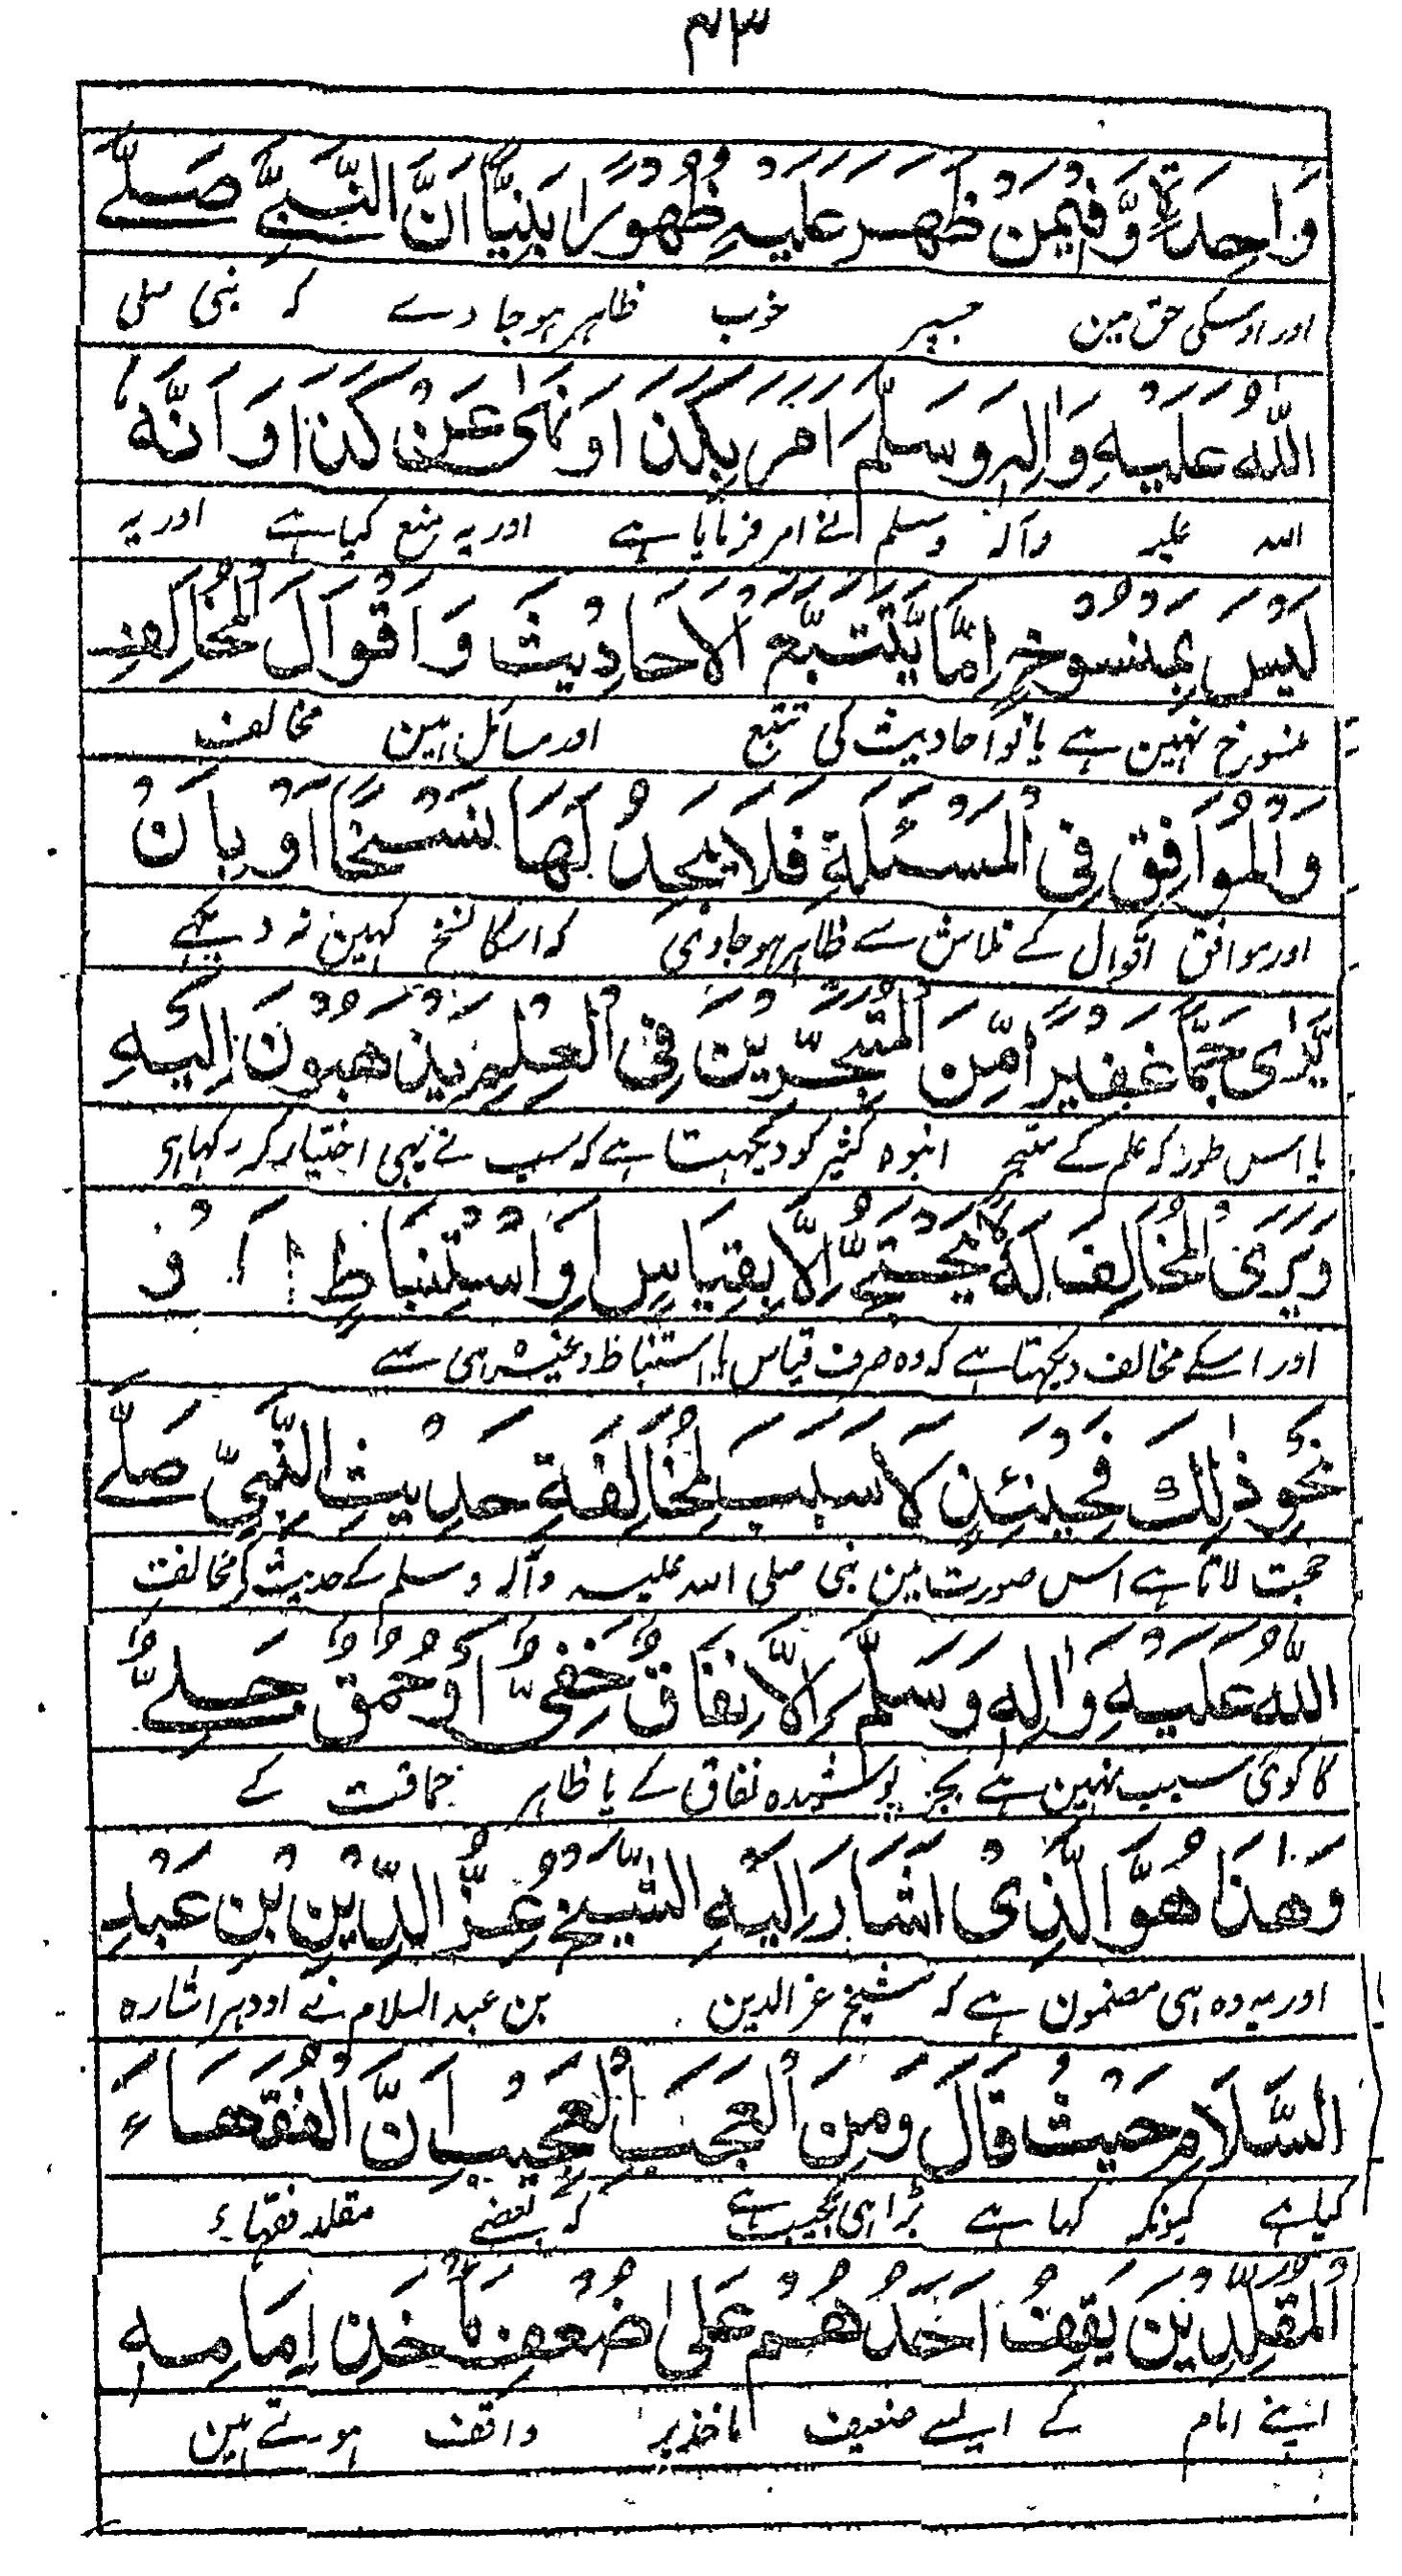 ۴۳
وَاحِدَةٍ وَّفِیْمَنْ ظَهَرَ عَلَیْهِ ظُهُوْرًا بَیِّنًا اَنَّ النَّبِیَّ صَلَّی
اور اوسکی حق مین جسپر خوب ظاہر ہو جا دے کہ نبی صلی
اللّٰهُ عَلَیْهِ وَاٰلِهٖ وَسَلَّمَ اَمَرَ بِکَذَا وَنَهٰی عَنْ کَذَا وَاَنَّهٗ
اللہ علیہ وآلہ وسلم نے امر فرمایا ہے اور یہ منع کیا ہے اور یہ
لَیْسَ بِمَنْسُوْخٍ اِمَّا یَتَتَبَّعُ الْاَحَادِیْثَ وَاَقْوَالَ الْمُخَالِفِ
منسوخ نہین ہے یا تو احادیث کی تتبع اور مسائل مین مخالف
وَالْمُوَافِقِ فِی الْمَسْئَلَةِ فَلَا یَجِدُ لَهَا نَسْخًا اَوْ بِاَنْ
اور موافق اقوال کے تلاش سے ظاہر ہو جاوی کہ اسکا نسخ کہین نہ دیکھے
یَّرٰی جَمًّا غَفِیْرًا مِّنَ الْمُتَبَحِّرِیْنَ فِی الْعِلْمِ یَذْهَبُوْنَ اِلَیْهِ
یا اس طور کہ علم کے متبحر انبوہ کثیر کو دیکہتا ہے کہ سب نے یہی اختیار کر رکہا ہی
وَیَرَی الْمُخَالِفَ لَهٗ لَا یَحْتَجُّ اِلَّا بِقِیَاسٍ اَوِ اسْتِنْبَاطٍ اَوْ
اور اسکے مخالف دیکہتا ہے کہ وہ صرف قیاس یا استنباط وغیرہ ہی سے
نَحْوِ ذٰلِكَ فَحِیْنَئِذٍ لَا سَبَبَ لِمُخَالَفَةِ حَدِیْثِ النَّبِیِّ صَلَّی
حجت لاتا ہے اس صورت مین نبی صلی اللہ علیہ وآلہ وسلم کے حدیث کی مخالفت
اللّٰهُ عَلَیْهِ وَاٰلِهٖ وَسَلَّمَ اِلَّا نِفَاقٌ خَفِیٌّ اَوْ حُمْقٌ جَلِیٌّ
کا کوئی سبب نہین ہے بجز پوشیدہ نفاق کے یا ظاہر حماقت کے
وَهٰذَا هُوَ الَّذِیْ اَشَارَ اِلَیْهِ الشَّیْخُ عِزُّ الدِّیْنِ بْنُ عَبْدِ
اور یہ وہ ہی مضمون ہے کہ شیخ عز الدین بن عبد السلام نے اودہر اشارہ
السَّلَامِ حَیْثُ قَالَ وَمِنَ الْعَجَبِ الْعَجِیْبِ اَنَّ الْفُقَهَاءَ
کیا ہے کیونکہ کہا ہے بڑا ہی عجیب ہے کہ بعضے مقلد فقہاء
الْمُقَلِّدِیْنَ یَقِفُ اَحَدُهُمْ عَلٰی ضُعْفِ مَاْخَذِ اِمَامِهٖ
اپنے امام کے ایسے ضعیف ماخذ پر واقف ہوتے ہین